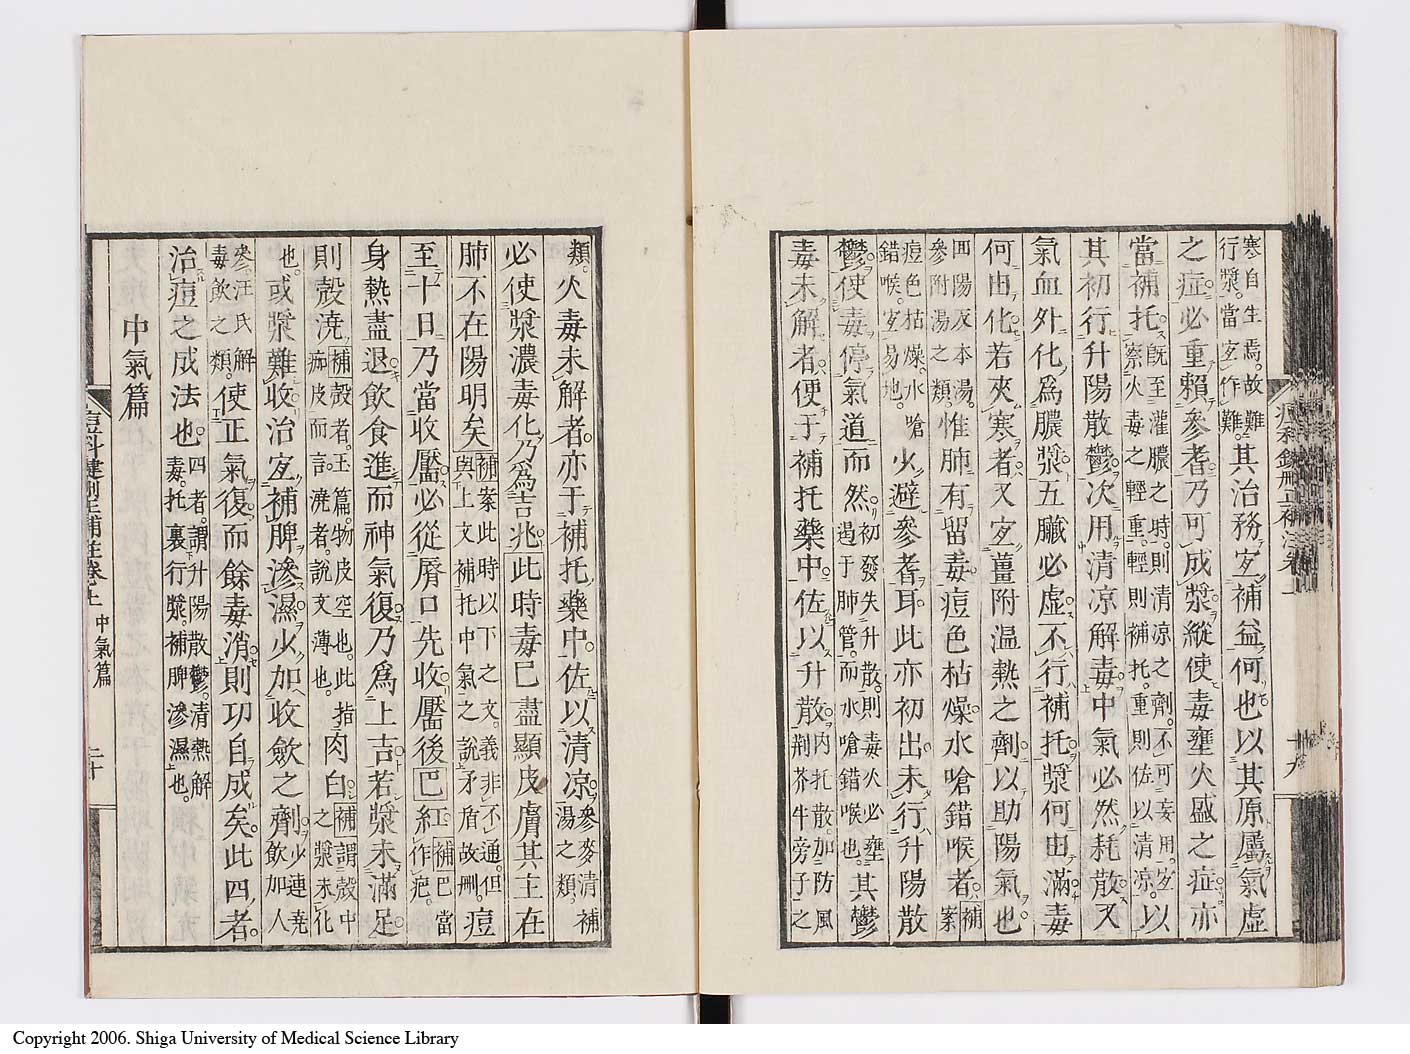 寒自生焉故難
行漿當宐作難其治務宐補益何也以其原屬氣虛
之症必重賴參耆乃可成漿縱使毒壅火盛之症亦
當補托察火毒之輕重輕則補托重則佐以清凉以
既至灌膿之時則清凉之劑不可妄用宐
其初行升陽散鬱次用清凉解毒中氣必然耗散又
氣血外化爲膿漿五臟必虛不行補托漿何由滿毒
何由化若夾寒者又宐薑附温熱之劑以助陽氣也
四陽及本湯
參附湯之類惟肺有留毒痘色枯燥水嗆錯喉者補案
痘色枯燥水嗆
錯喉宐易地少避參耆耳此亦初出未行升陽散
鬱使毒停氣道而然初發失升散則毒火必壅
遏于肺管而水嗆錯喉也其鬱
毒未解者便于補托藥中佐以升散内托散加防風
荆芥牛旁子之
類火毒未解者亦于補托藥中佐以清凉參麥清補
湯之類
必使漿濃毒化乃爲吉兆此時毒已盡顯皮膚其主在
肺不在陽明矣補案此時以下之文義非不通但
與上文補托中氣之說矛盾故刪痘
至十日乃當收靨必從脣口先收靨後巴紅補巴當
作疤
身熱盡退飲食進而神氣復乃爲上吉若漿未滿足
則殼澆補殼者玉篇物皮空也此指
痂皮而言澆者說文薄也肉白補謂殼中
之漿未化
也或漿難收治宐補脾滲濕少加收斂之劑少連堯
飲加人
參汪氏解
毒飲之類使正氣復而餘毒消則功自成矣此四者
治痘之成法也四者謂升陽散鬱清熱解
毒托裏行漿補脾滲濕也
中氣篇
中氣篇
二十